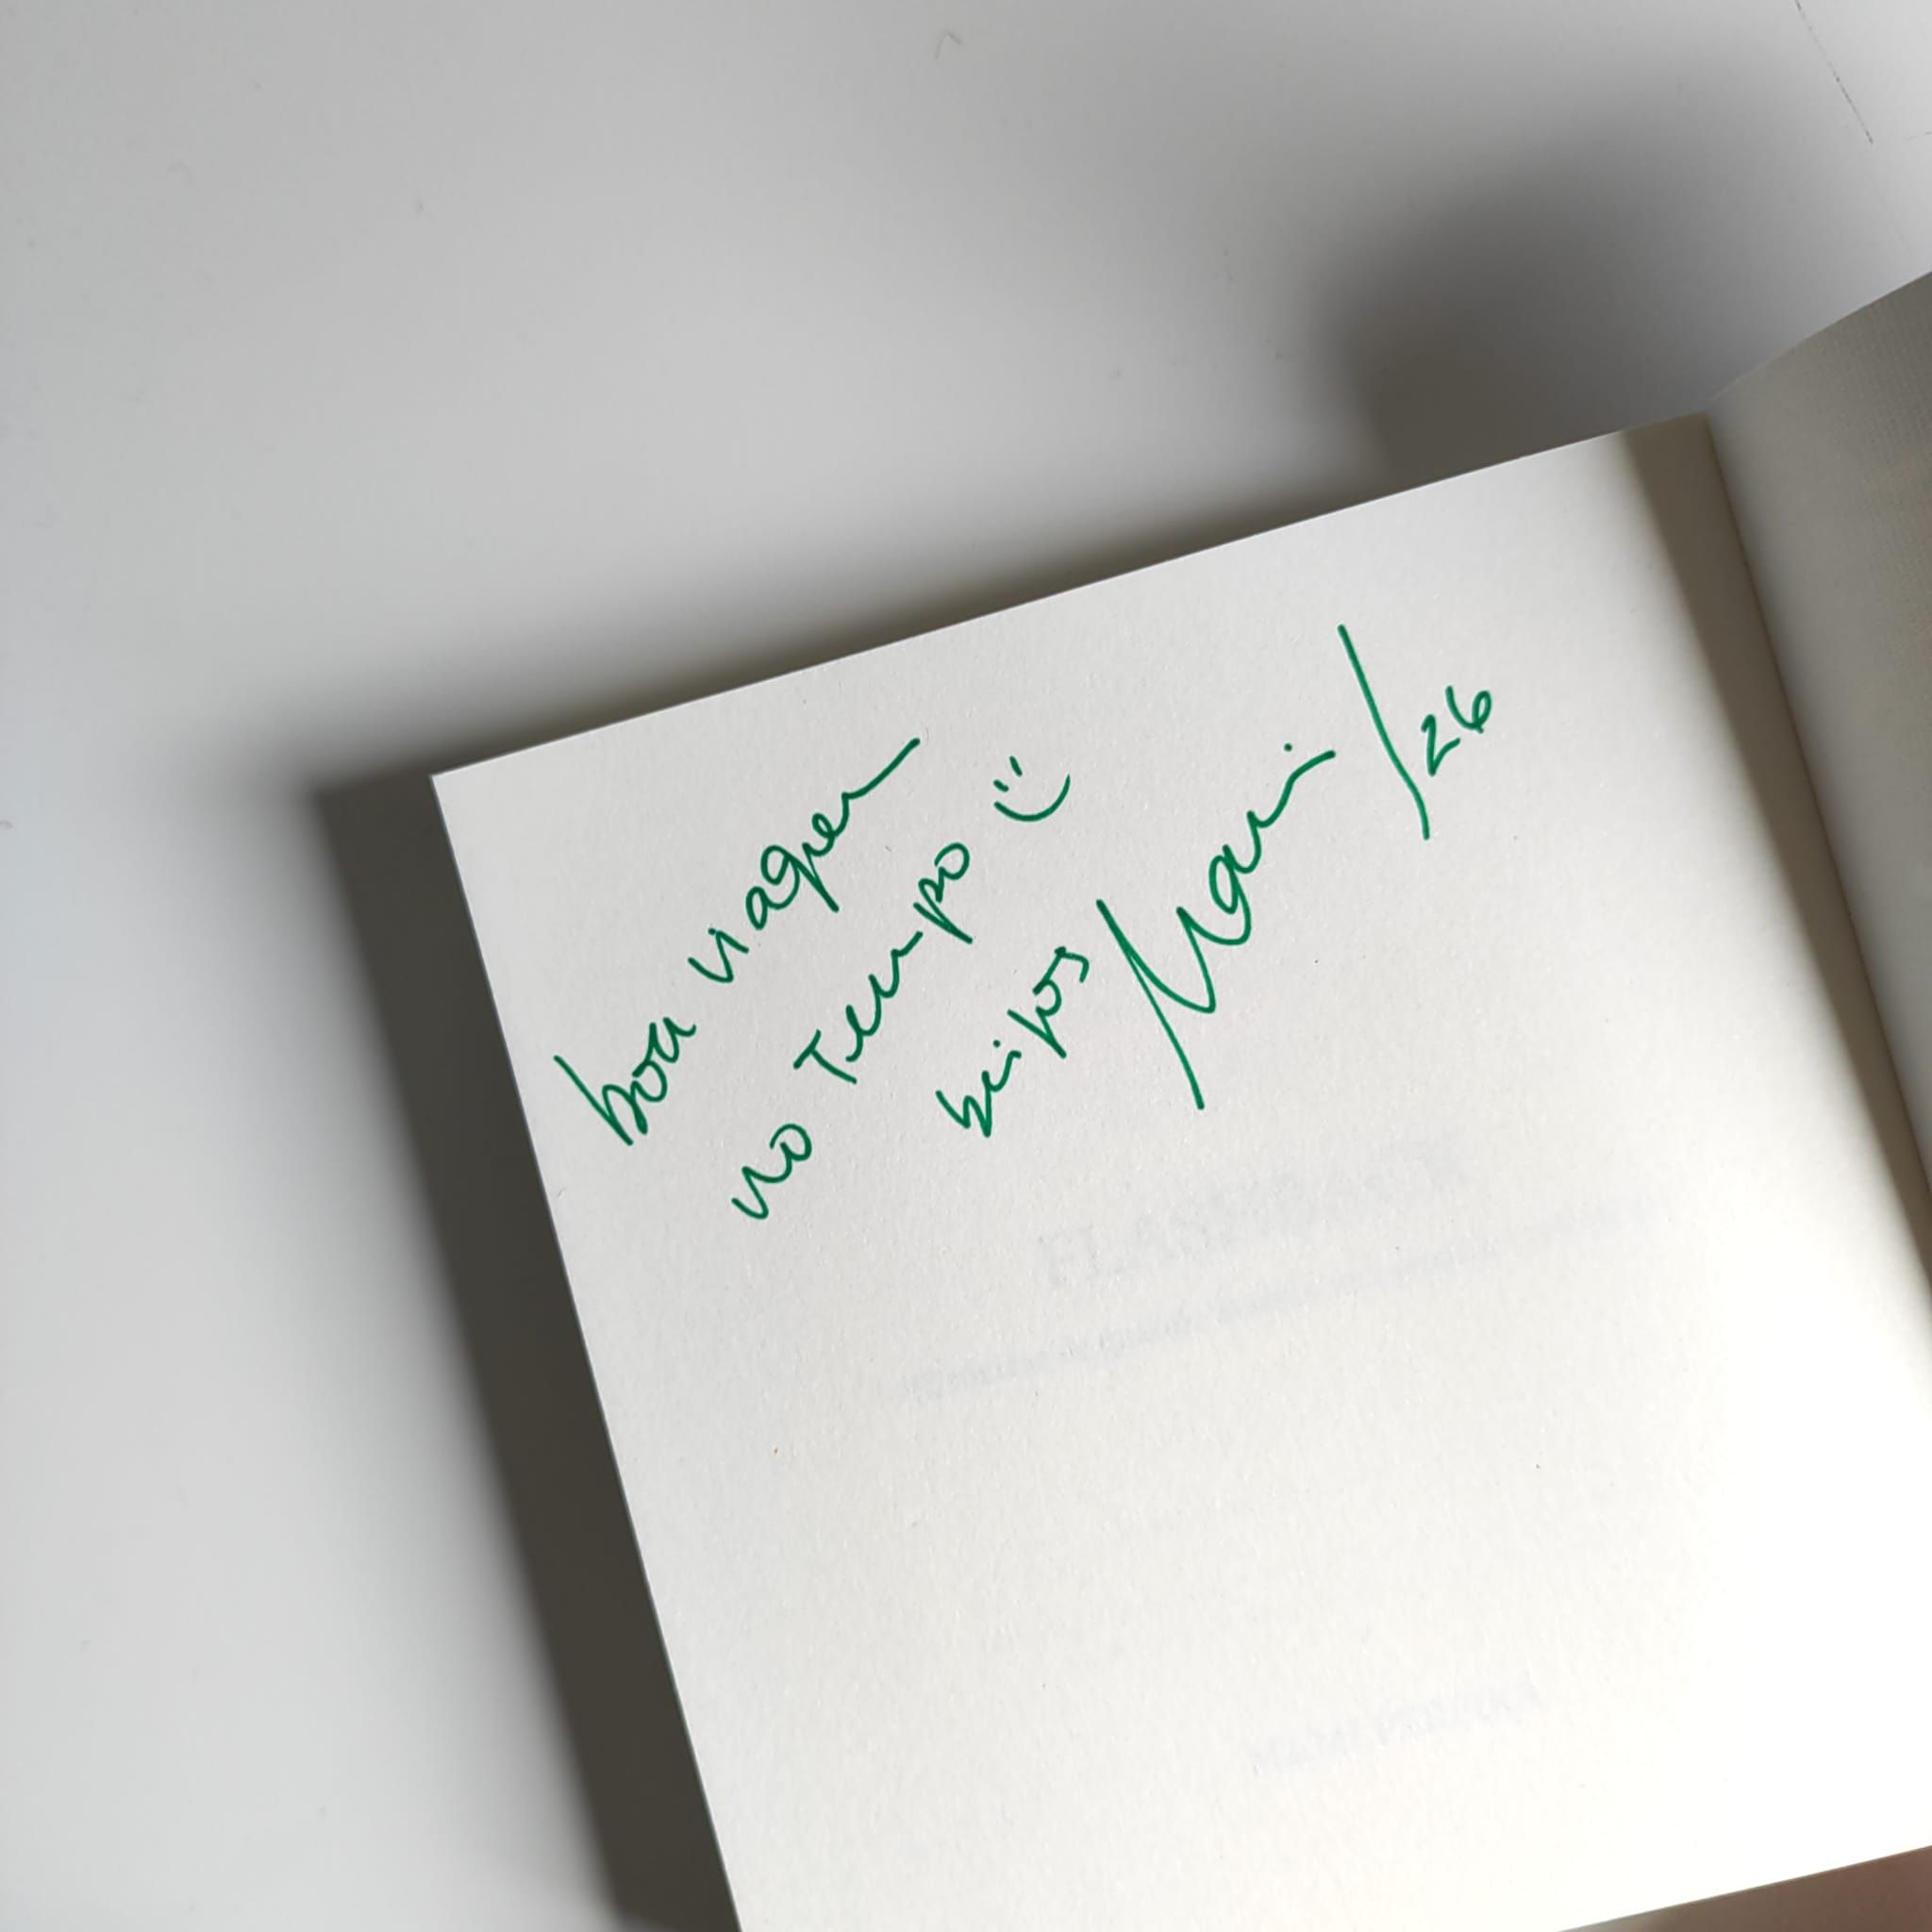 boa viagem
no Tempo :)
beijos
/26